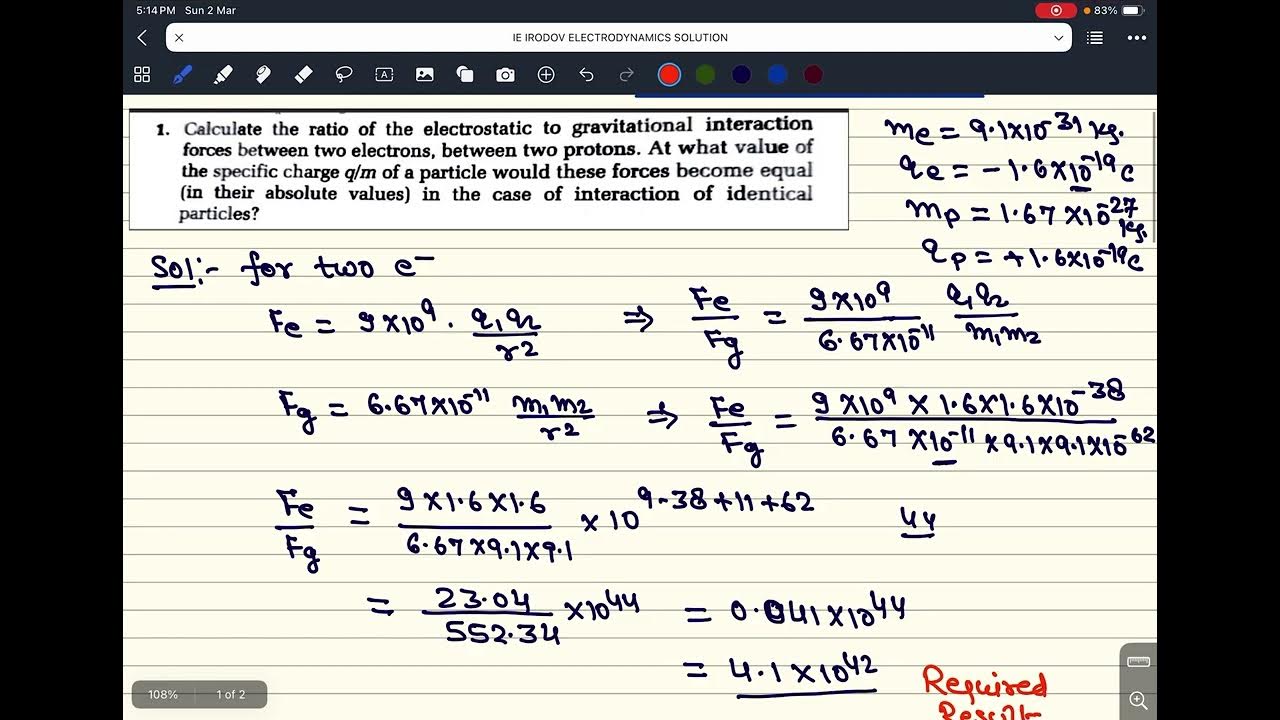 5:14 PM Sun 2 Mar
83%
IE IRODOV ELECTRODYNAMICS SOLUTION
1. Calculate the ratio of the electrostatic to gravitational interaction
forces between two electrons, between two protons. At what value of
the specific charge q/m of a particle would these forces become equal
(in their absolute values) in the case of interaction of identical
particles?
me = 9.1×10⁻³¹ kg.
qe = -1.6×10⁻¹⁹ C
mp = 1.67×10⁻²⁷ kg.
qp = +1.6×10⁻¹⁹ C
Sol:- for two e⁻
Fe = 9×10⁹ · q₁q₂/r² ⇒ Fe/Fg = 9×10⁹/6.67×10⁻¹¹ q₁q₂/m₁m₂
Fg = 6.67×10⁻¹¹ m₁m₂/r² ⇒ Fe/Fg = 9×10⁹×1.6×1.6×10⁻³⁸/6.67×10⁻¹¹×9.1×9.1×10⁻⁶²
Fe/Fg = 9×1.6×1.6/6.67×9.1×9.1 × 10⁹⁻³⁸⁺¹¹⁺⁶² 44
= 23.04/552.34 × 10⁴⁴ = 0.041×10⁴⁴
= 4.1×10⁴²
Required
Result
108% 1 of 2